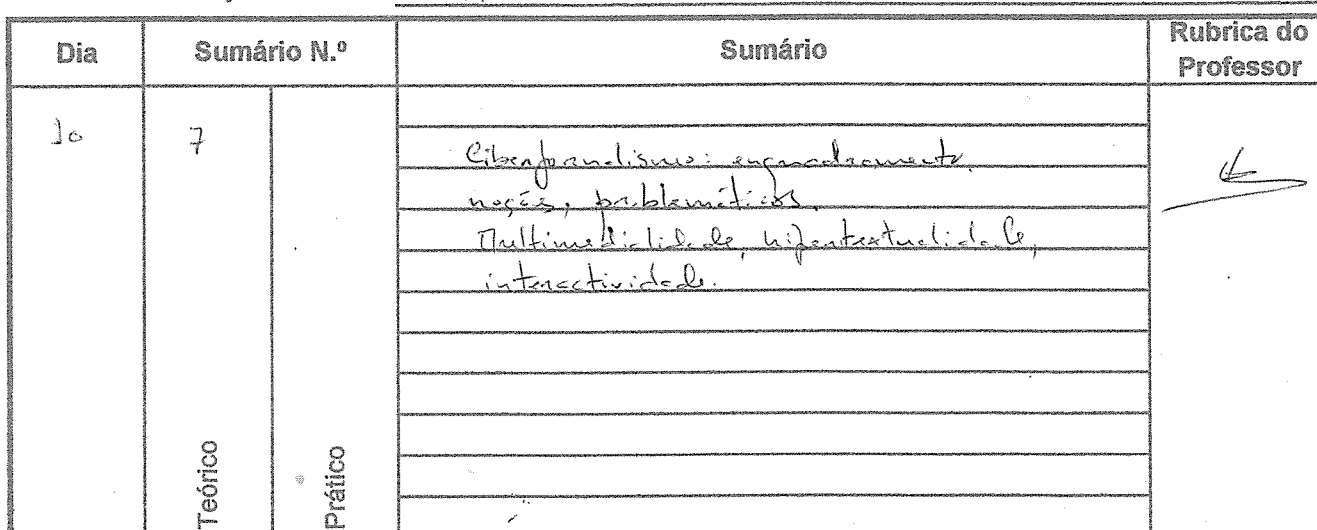 Dia Sumário N.º Sumário Rubrica do Professor
10 7
Ciberjornalismo: enquadramento,
noções, problemáticas.
Multimedialidade, hipertextualidade,
interactividade.
Teórico Prático